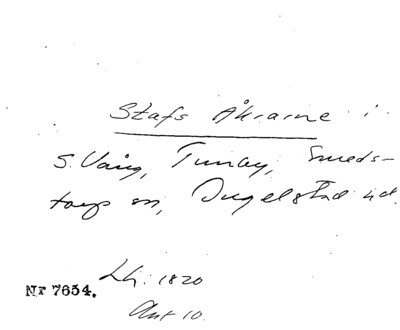 Stafs Åkrarne i
S. Vång, Tunby, Smeds-
torps sn, Ingelstad hd.
Lh. 1820
Nr 7654.
Akt 10.